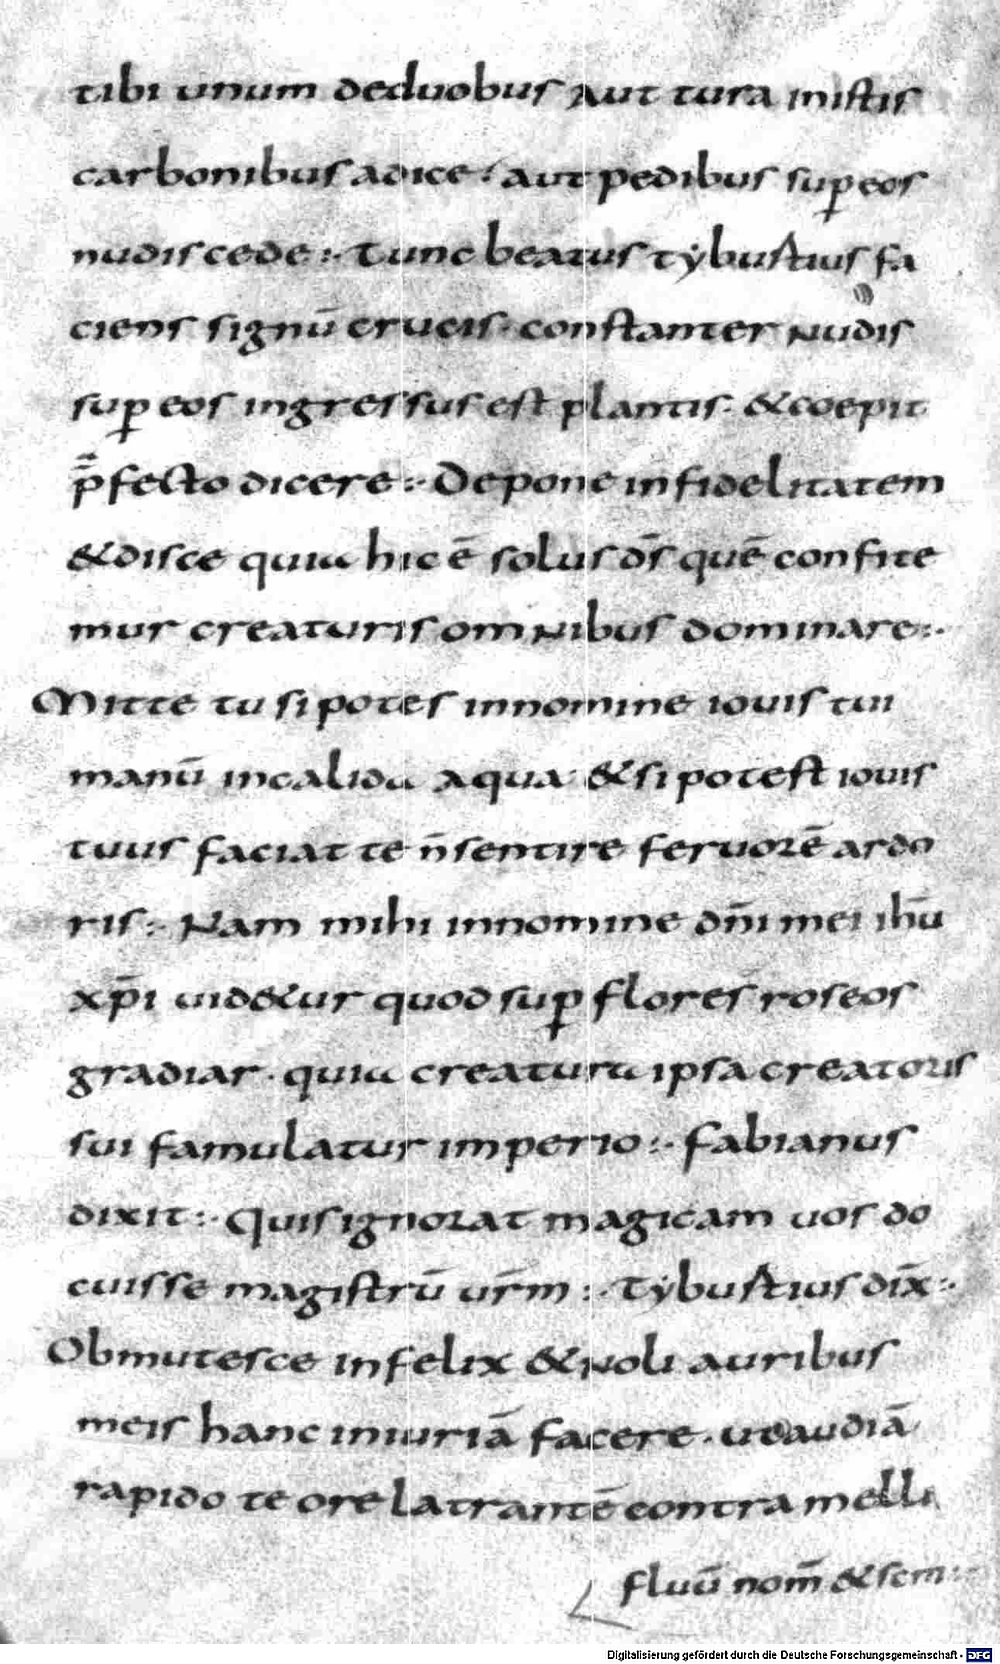 tibi unum deduobus aut tura inistis
carbonibus adice ; aut pedibus sup̲ eos
nudis cede :· Tunc beatus tyburtius fa
ciens signū crucis · constanter nudis
sup̲ eos ingressus est plantis · & coepit
p̄fecto dicere :· Depone infidelitatem
& disce quia hic ē solus d̄s quē confite
mur creaturis omnibus dominare :·
Mitte tu si potes innomine iouis tui
manū incalida aqua · & si potest iouis
tuus faciat te n̄ sentire feruorē ardo
ris :· Nam mihi innomine dn̄i mei ihū
xp̄i uid&ur quod sup̲ flores roseos
gradiar · quia creatura ipsa creatoris
sui famulatur imperio :· fabianus
dixit :· Quis ignorat magicam uos do
cuisse magistrū ur̄m :· Tyburtius dix̄ :·
Obmutesce infelix & noli auribus
meis hanc iniuriā facere · ut audiā
rapido te ore latrantē contra melli
fluū nom̄ & scm :·
Digitalisierung gefördert durch die Deutsche Forschungsgemeinschaft - DFG